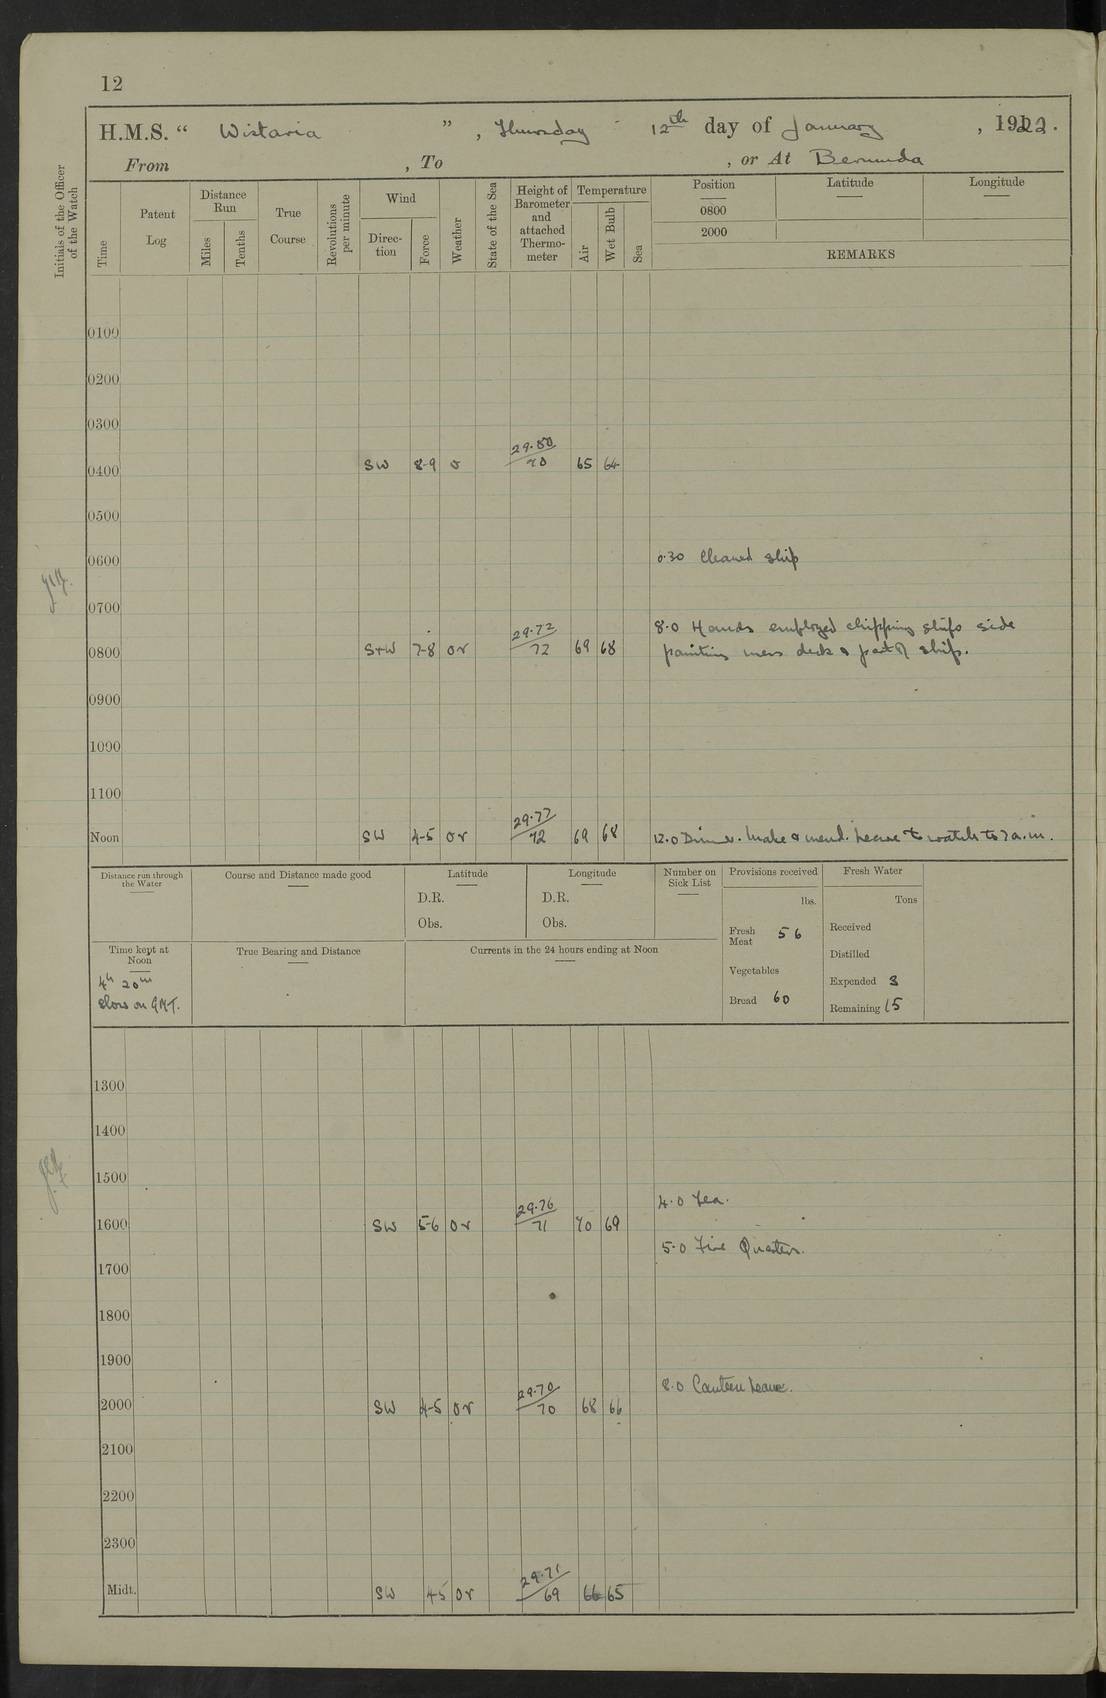 12
H.M.S. “ Wistaria ” , Thursday 12th day of January , 1922.
From , To , or At Bermuda
Initials of the Officer of the Watch
Time
Patent Log
Distance Run
Miles
Tenths
True Course
Revolutions per minute
Wind
Direc-tion
Force
Weather
State of the Sea
Height of Barometer and attached Thermo-meter
Temperature
Air
Wet Bulb
Sea
Position
Latitude
Longitude
0800
2000
REMARKS
0100
0200
0300
0400 SW 8-9 o 29.80/70 65 64
0500
0600 6.30 Cleaned ship
0700
8.0 Hands employed chipping ships side
0800 S+W 7-8 or 29.72/72 69 68 painting mess deck & part of ship.
0900
1000
1100
Noon SW 4-5 or 29.77/72 69 68 12.0 Dinner. Make & mend. Leave to watch to 7 a.m.
Distance run through the Water
Course and Distance made good
Latitude
D.R.
Obs.
Longitude
D.R.
Obs.
Number on Sick List
Provisions received
lbs.
Fresh Meat 56
Vegetables
Bread 60
Fresh Water
Tons
Received
Distilled
Expended 3
Remaining 15
Time kept at Noon
4h 20m
slow on GMT.
True Bearing and Distance
Currents in the 24 hours ending at Noon
1300
1400
1500
4.0 Tea.
1600 SW 5-6 or 29.76/71 70 69
5.0 Fire Quarters.
1700
1800
1900
8.0 Canteen Leave.
2000 SW 4-5 or 29.70/70 68 66
2100
2200
2300
Midt. SW 4-5 or 29.71/69 66 65